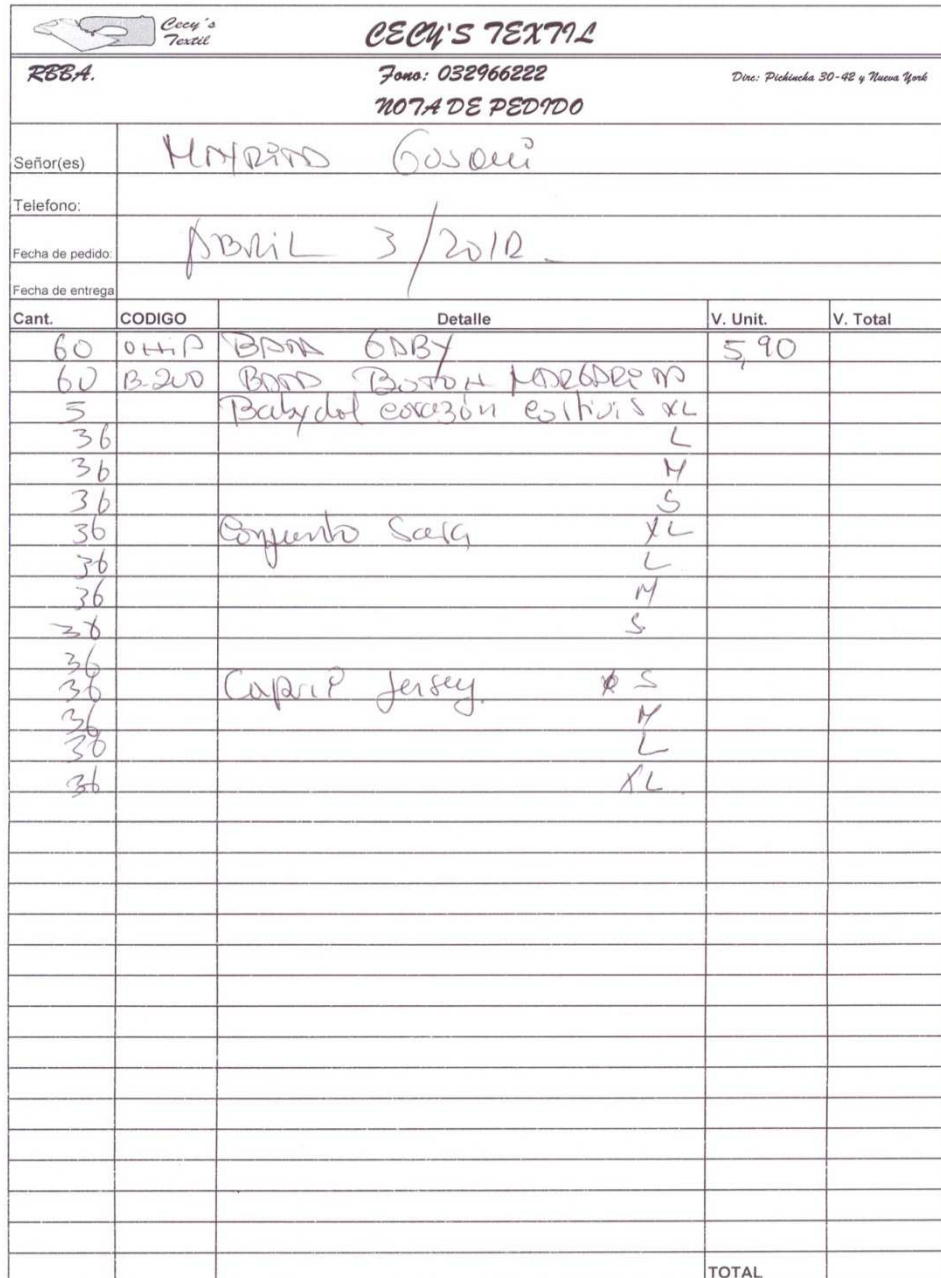 Cecy´s
Textil
CECY'S TEXTIL
RBBA.
Fono: 032966222
Dirc: Pichincha 30-42 y Nueva York
NOTA DE PEDIDO
Señor(es)
Telefono:
Fecha de pedido: ABRIL 3/2012
Fecha de entrega
Cant. CODIGO Detalle V. Unit. V. Total
60 BATA GABY 5,90
60 B-200 BATA BOTON MARGARITA
5 Babydol corazón XL
36 L
36 M
36 S
36 Conjunto Sara XL
36 L
36 M
36 S
36
36 Capri Jersey. S
36 M
36 L
36 XL
TOTAL